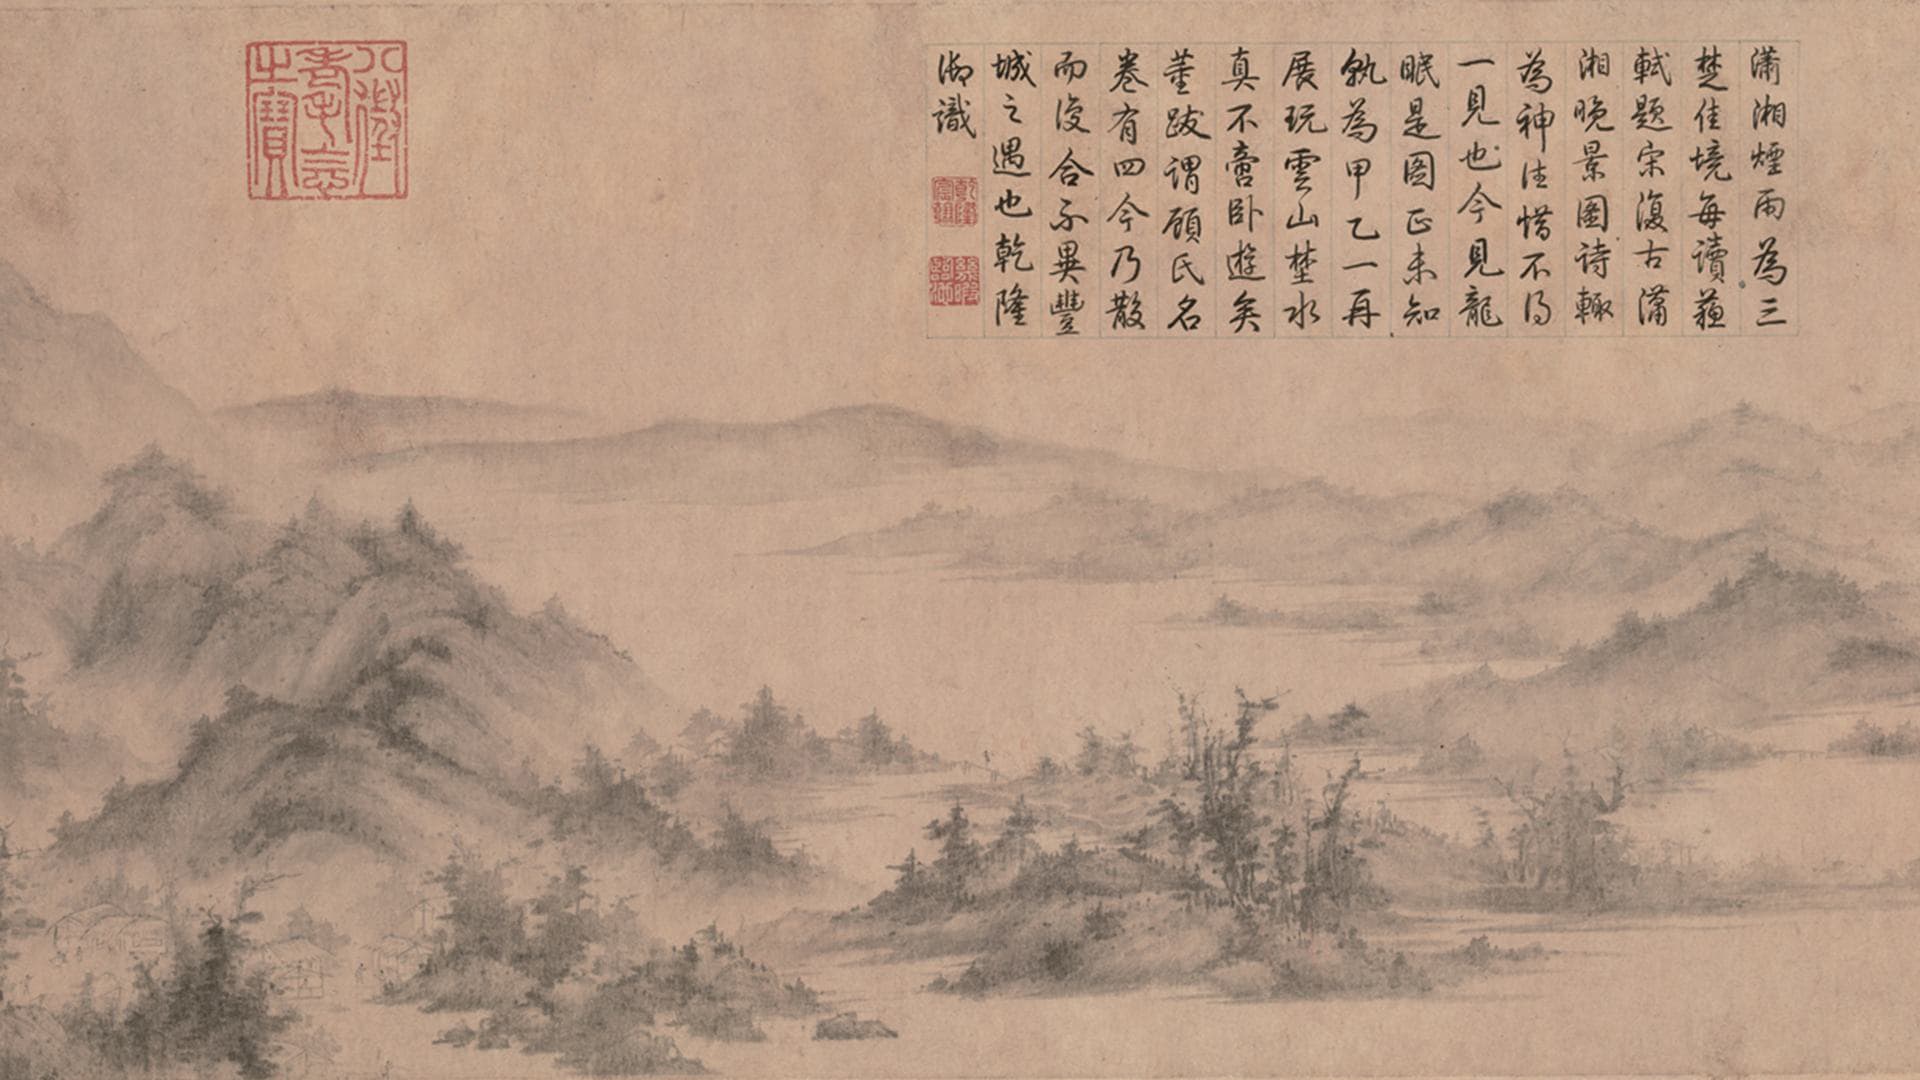 瀟湘煙雨為三
楚佳境每讀蘓
軾題宋復古瀟
湘晚景圖詩輙
為神往惜不得
一見也今見龍
眠是圖正未知
孰為甲乙一再
展玩雲山埜水
真不啻臥遊矣
董跋謂顧氏名
卷有四今乃散
而復合不異豐
城之遇也乾隆
御識
乾隆宸翰
幾暇臨池
八徵耄念之寶